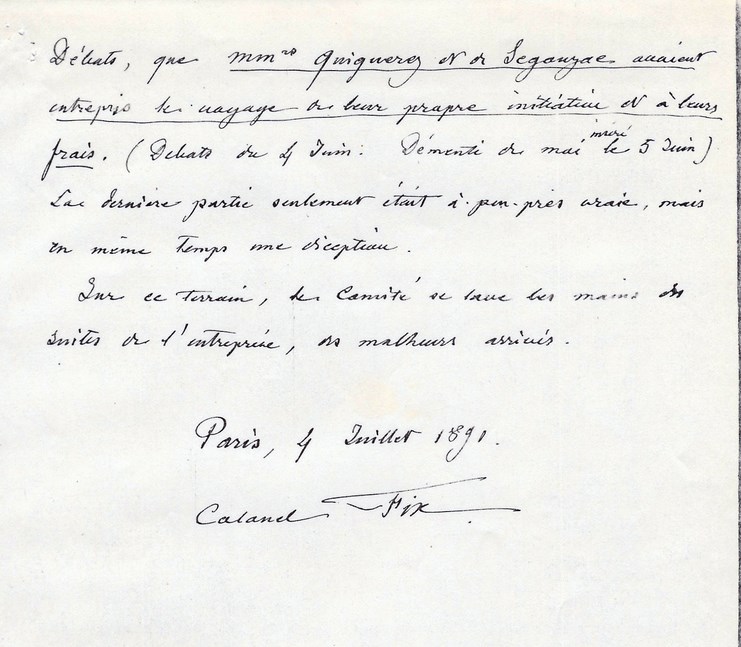 Débats, que MMrs Quiquerez et de Segonzac avaient
entrepris le voyage de leur propre initiative et à leurs
frais. (Débats du 4 Juin: Démenti de moi inséré le 5 Juin)
La dernière partie seulement était à-peu-près vraie, mais
en même temps une déception.
Sur ce terrain, le Comité se lave les mains des
suites de l'entreprise, des malheurs arrivés.
Paris, 4 Juillet 1891.
Colonel Fix